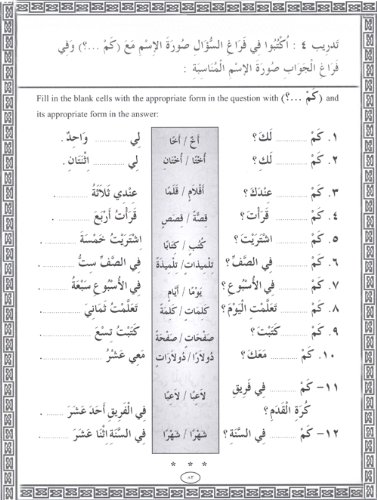 تَدريب ٤ : اُكْتُبُوا فِي فَرَاغِ السُّؤَالِ صُورَةَ الاِسْمِ مَعَ (كَمْ ...؟) وَفِي
فِرَاغِ الْجَوَابِ صُورَةَ الاِسْمِ الْمُنَاسِبَةَ :
Fill in the blank cells with the appropriate form in the question with (كَمْ ...؟) and
its appropriate form in the answer:
١. كَمْ ........ لَكَ؟ أَخٌ / أَخًا لِي ........ وَاحِدٌ.
٢. كَمْ ........ لَكَ؟ أُخْتًا / أُخْتَانِ لِي ........ اِثْنَتَانِ.
٣. كَمْ ........ عِنْدَكَ؟ أَقْلَامٍ / قَلَمًا عِنْدِي ثَلَاثَةُ ........
٤. كَمْ ........ قَرَأْتَ؟ قِصَّةً / قِصَصٍ قَرَأْتُ أَرْبَعَ ........
٥. كَمْ ........ اشْتَرَيْتَ؟ كُتُبٍ / كِتَابًا اِشْتَرَيْتُ خَمْسَةَ ........
٦. كَمْ ........ فِي الصَّفِّ؟ تِلْمِيذَاتٍ / تِلْمِيذَةً فِي الصَّفِّ سِتُّ ........
٧. كَمْ ........ فِي الْأُسْبُوعِ؟ يَوْمًا / أَيَّامٍ فِي الْأُسْبُوعِ سَبْعَةُ ........
٨. كَمْ ........ تَعَلَّمْتَ الْيَوْمَ؟ كَلِمَاتٍ / كَلِمَةً تَعَلَّمْتُ ثَمَانِيَ ........
٩. كَمْ ........ كَتَبْتَ؟ صَفْحَاتٍ / صَفْحَةً كَتَبْتُ تِسْعَ ........
١٠. كَمْ ........ مَعَكَ؟ دُولَارًا / دُولَارَاتٍ مَعِي عَشْرُ ........
١١- كَمْ ........ فِي فَرِيقِ
كُرَةِ الْقَدَمِ؟ لَاعِبًا / لَاعِبًا فِي الْفَرِيقِ أَحَدَ عَشَرَ ........
١٢- كَمْ ........ فِي السَّنَةِ؟ شَهْرًا / شَهْرًا فِي السَّنَةِ اِثْنَا عَشَرَ ........
* * *
٨٣